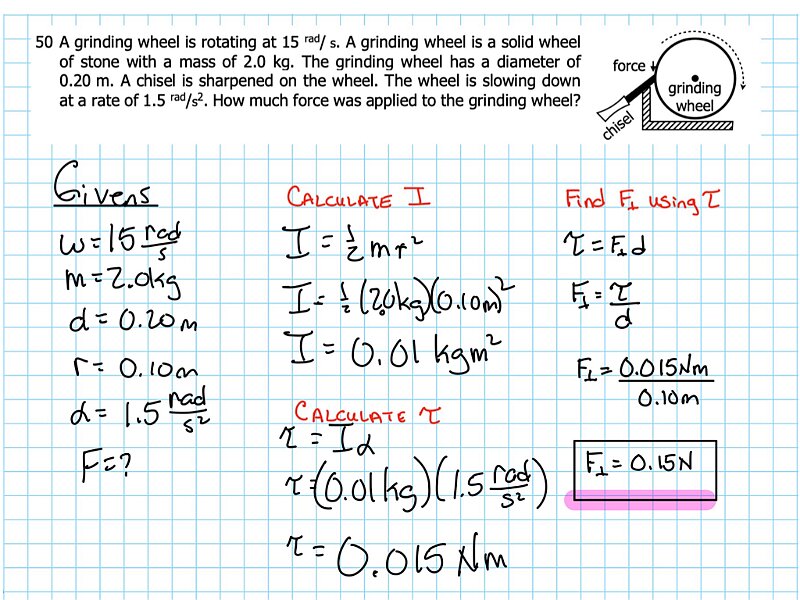 50 A grinding wheel is rotating at 15 rad/s. A grinding wheel is a solid wheel
of stone with a mass of 2.0 kg. The grinding wheel has a diameter of
0.20 m. A chisel is sharpened on the wheel. The wheel is slowing down
at a rate of 1.5 rad/s². How much force was applied to the grinding wheel?
force
grinding
wheel
chisel
Givens
ω=15 rad/s
m=2.0kg
d=0.20m
r=0.10m
α=1.5 rad/s²
F=?
CALCULATE I
I=½mr²
I=½(2.0kg)(0.10m)²
I=0.01 kgm²
CALCULATE τ
τ=Iα
τ=(0.01kg)(1.5 rad/s²)
τ=0.015 Nm
Find F⊥ using τ
τ=F⊥d
F⊥=τ/d
F⊥=0.015Nm/0.10m
F⊥=0.15N